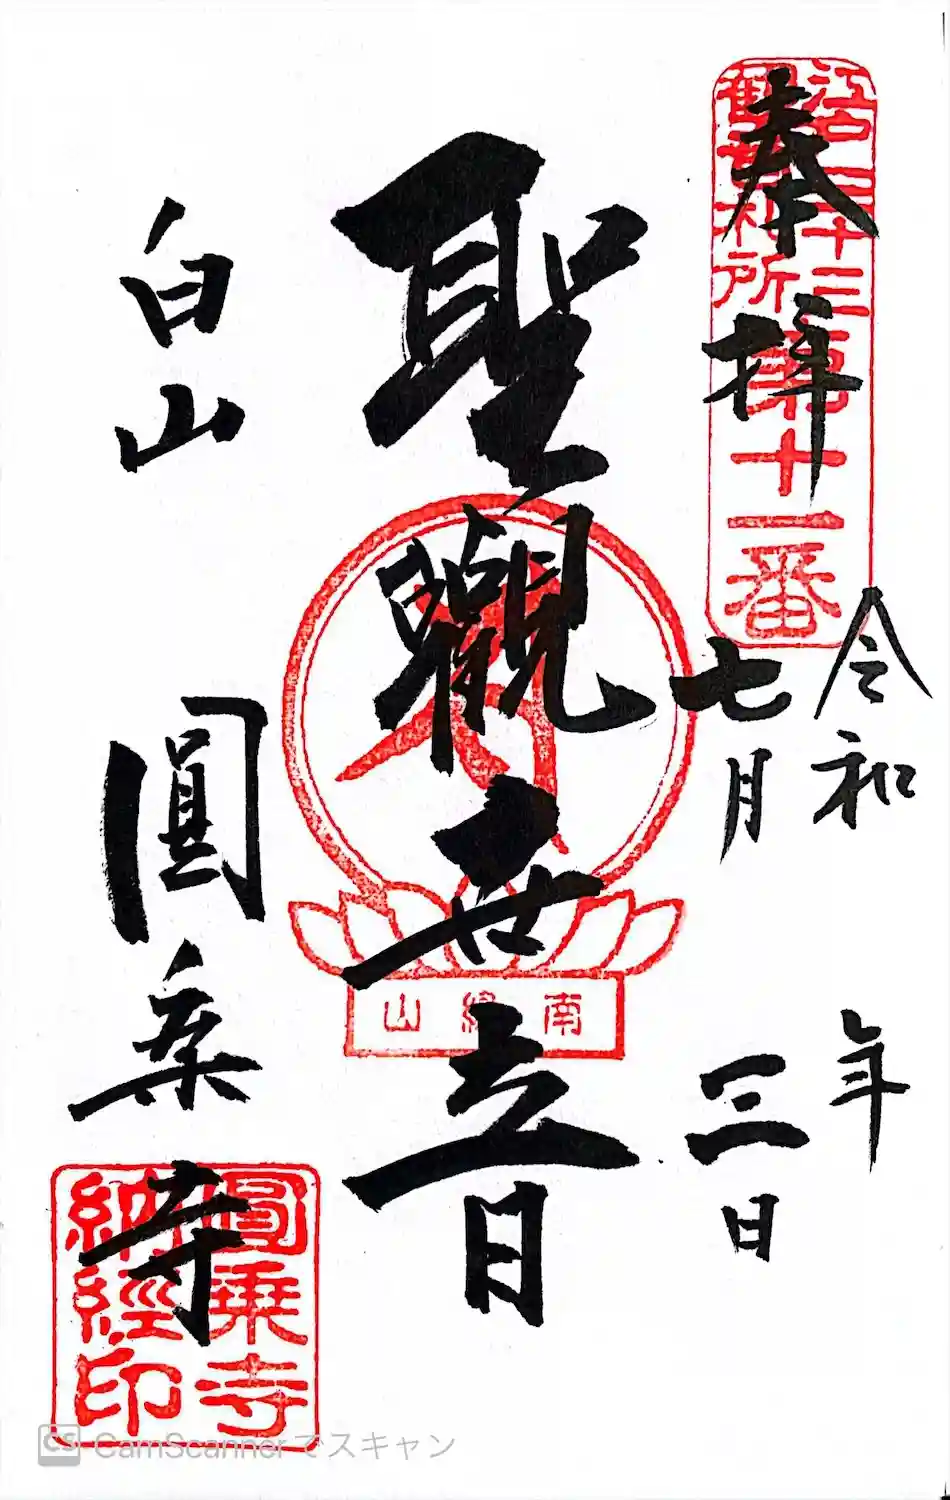 江戸三十三
観音札所
第十一番
奉拝
令和 年
七月三日
聖觀世音
南縁山
白山
圓乗寺
圓乗寺
納經印
CS CamScannerでスキャン